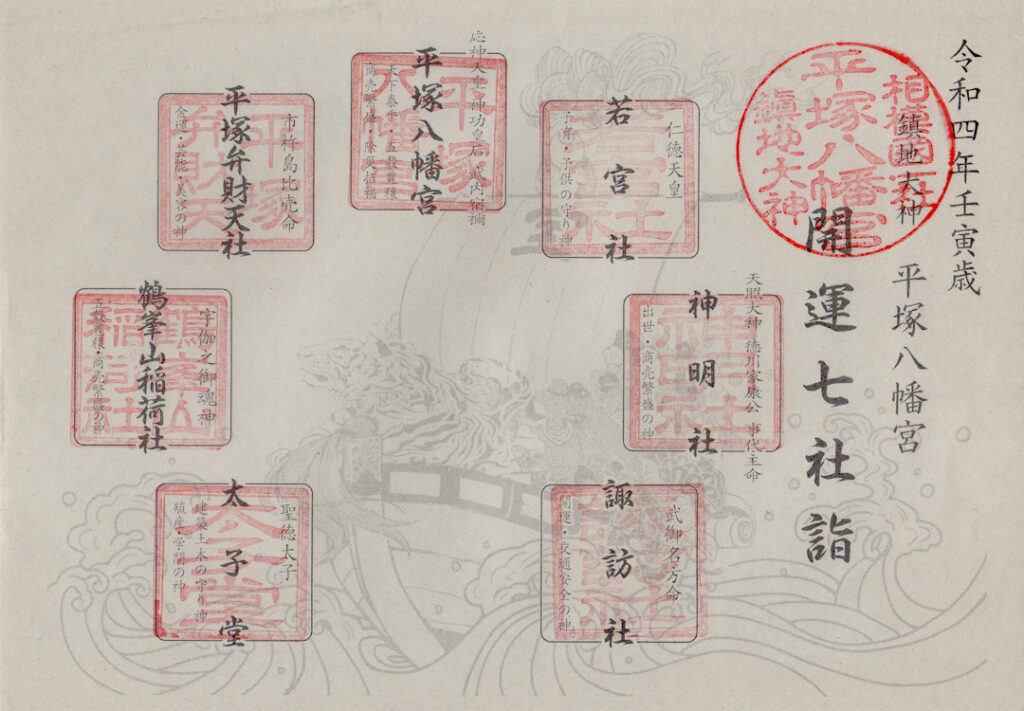 令和四年壬寅歳
鎮地大神
平塚八幡宮
開運七社詣
相模国一社
平塚八幡宮
鎮地大神
仁徳天皇
若宮社
子育・子供の守り神
若宮社
応神天皇・神功皇后・武内宿禰
平塚八幡宮
天下泰平・五穀豊穣
商売繁盛・除災招福
平塚
八幡宮
市杵島比売命
平塚弁財天社
金運・芸能・美容の神
平塚
弁財天
天照大神 徳川家康公 事代主命
神明社
出世・商売繁盛の神
神明社
宇伽之御魂神
鶴峯山稲荷社
五穀豊穣・商売繁盛の神
鶴峯山
稲荷社
武御名方命
諏訪社
開運・交通安全の神
諏訪社
聖徳太子
太子堂
建築土木の守り神
殖産・学問の神
太子堂